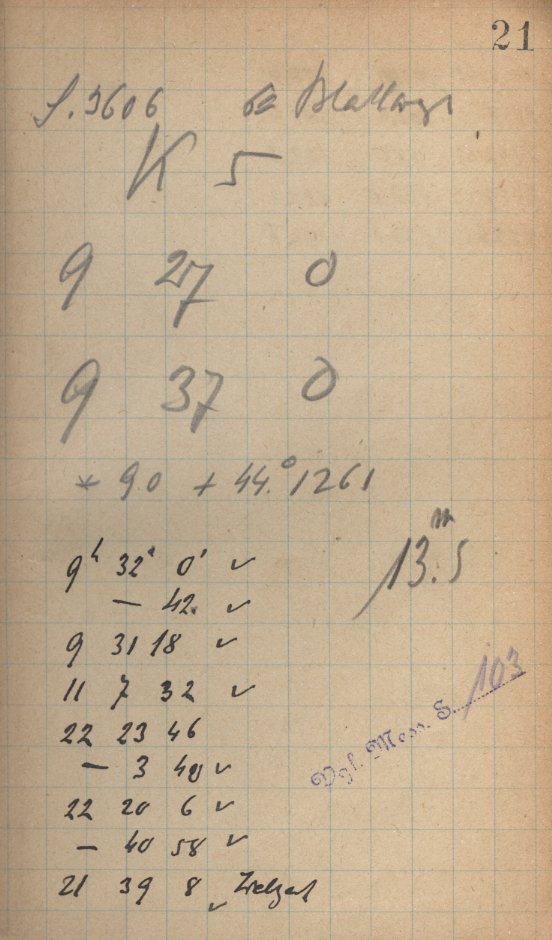 21
S. 3606
K 5
9 27 0
9 37 0
* 90 + 44.°1261
13.5 m
9h 32 0 ✓
– 42. ✓
9 31 18 ✓
11 7 32 ✓
22 23 46
– 3 40 ✓
22 20 6 ✓
– 40 58 ✓
21 39 8 ✓
Vgl. Mess. S. 103